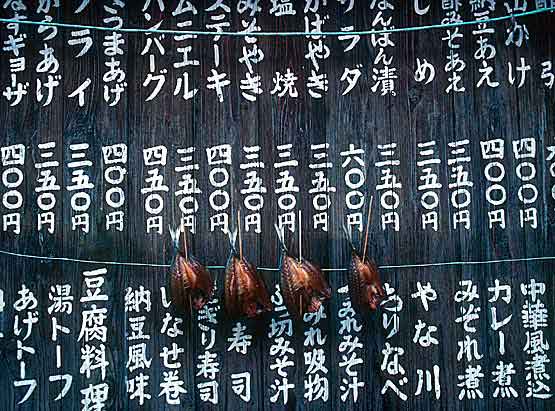 山かけ
納豆あえ
酢みそあえ
酢じめ
なんばん漬
サラダ
かばやき
塩焼
みそやき
ステーキ
ムニエル
ハンバーグ
さつまあげ
フライ
からあげ
なすギョザ
四〇〇円
四〇〇円
三五〇円
三五〇円
三五〇円
六〇〇円
三五〇円
三五〇円
三五〇円
四〇〇円
三五〇円
四五〇円
三〇〇円
三五〇円
三五〇円
四〇〇円
中華風煮込
カレー煮
みぞれ煮
やな川
ちりなべ
みそ汁
みれ吸物
みそ汁
寿司
ぎり寿司
しなせ巻
納豆風味
豆腐料理
湯トーフ
あげトーフ